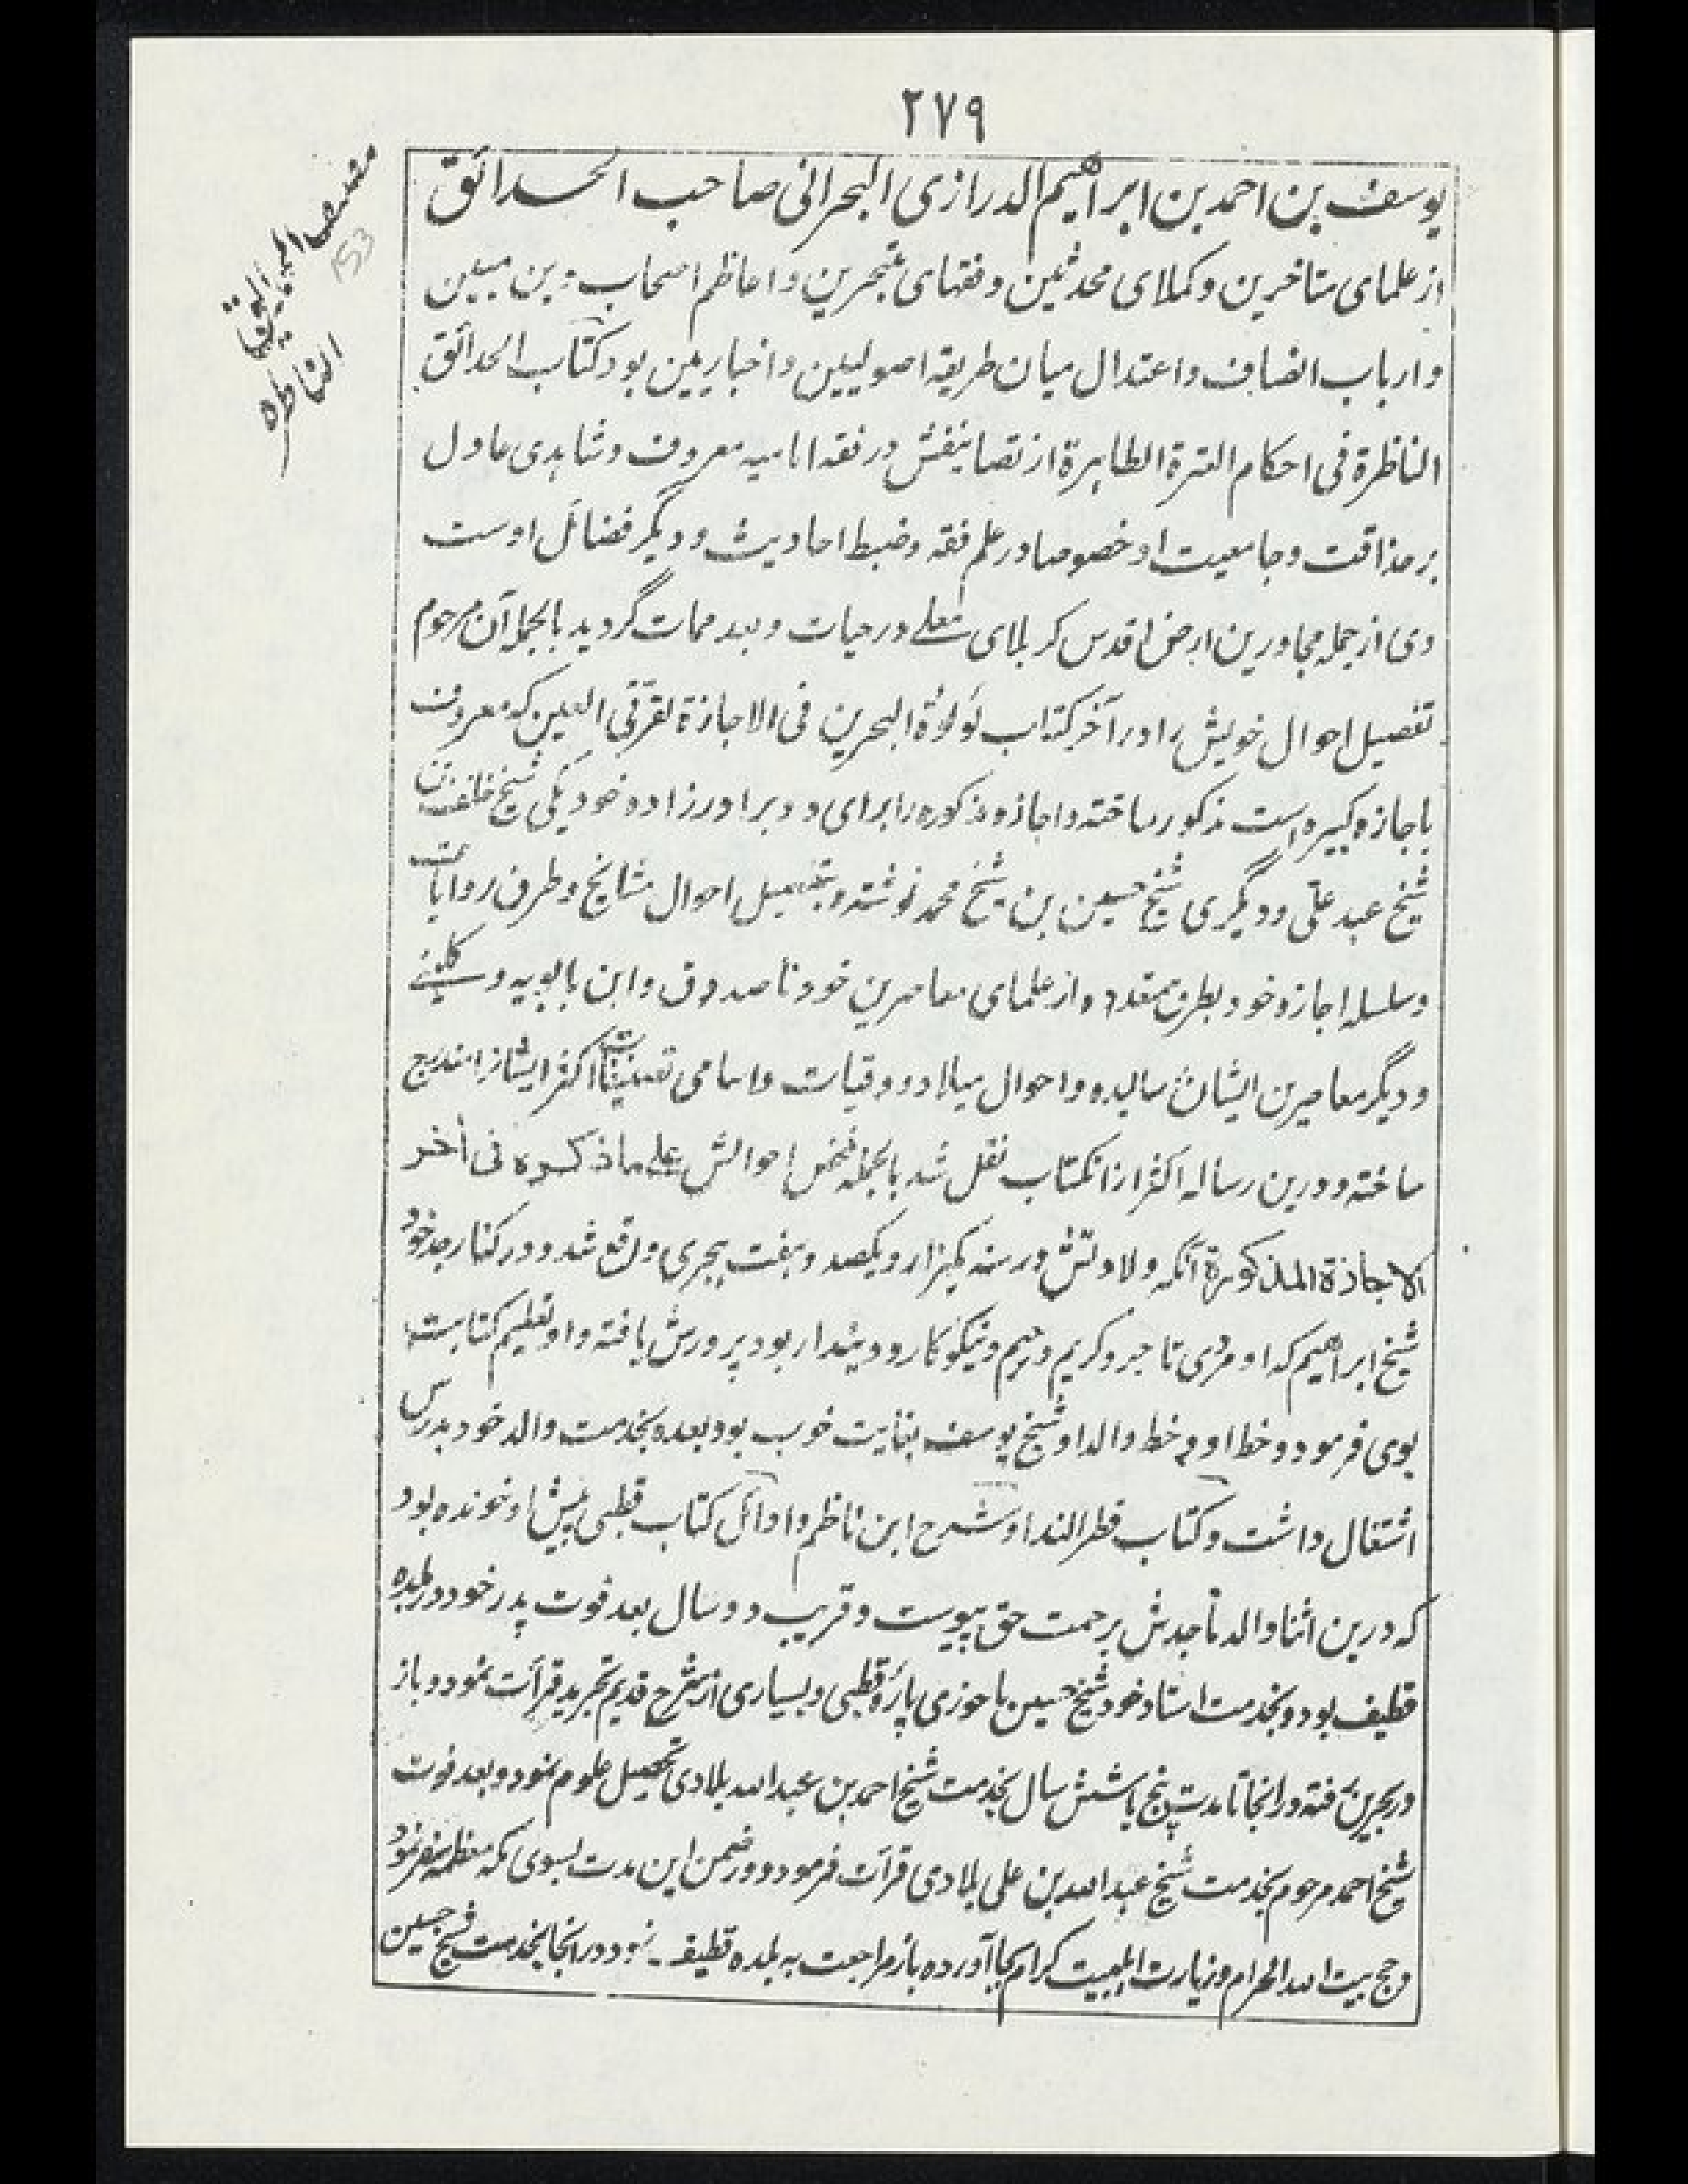 ۲۷۹
یوسف بن احمد بن ابراهیم الدرازی البحرانی صاحب الحدائق
از علمای متاخرین و کملای محدثین و فقهای متبحرین و اعاظم اصحاب دین مبین
و ارباب انصاف و اعتدال میان طریقه اصولیین و اخباریین بود کتاب الحدائق
الناظرة فی احکام العترة الطاهرة از تصانیفش در فقه امامیه معروف و شاهدی عادل
بر حذاقت و جامعیت او خصوصا در علم فقه و ضبط احادیث و دیگر فضائل اوست
وی از جمله مجاورین ارض اقدس کربلای معلی در حیات و بعد ممات گردید بالجمله آن مرحوم
تفصیل احوال خویش را در آخر کتاب لؤلؤة البحرین فی الاجازة لقرتی العین که معروف
باجازه کبیره است مذکور ساخته و اجازه مذکوره را برای دو برادرزاده خود یکی شیخ خلف بن
شیخ عبد علی و دیگری شیخ حسین بن شیخ محمد نوشته و بتفصیل احوال مشایخ و طرق روایات
و سلسله اجازه خود بطرق متعدده از علمای معاصرین خود تا صدوق و ابن بابویه و کلینی
و دیگر معاصرین ایشان رسانیده و احوال میلاد و وفیات و اسامی تصنیفات اکثر ایشانرا مندرج
ساخته و درین رساله اکثر از انکتاب نقل شد بالجمله ملخص احوالش علی ما ذکره فی آخر
الاجازة المذکورة آنکه ولادتش در سنه یکهزار و یکصد و هفت هجری واقع شد و در کنار جد خود
شیخ ابراهیم که او مردی تاجر و کریم و رحیم و نیکوکار و دیندار بود پرورش یافته و او تعلیم کتابت
بوی فرمود و خط او و خط والد او شیخ یوسف بغایت خوب بود بعده بخدمت والد خود بدرس
اشتغال داشت و کتاب قطر الندا و شرح ابن ناظم و اوائل کتاب قطبی پیش او خوانده بود
که درین اثنا والد ماجدش برحمت حق پیوست و قریب دو سال بعد فوت پدر خود در بلده
قطیف بود و بخدمت استاد خود شیخ حسین ماحوزی پاره قطبی و بسیاری از شرح قدیم تجرید قرأت نمود و باز
در بحرین رفته در انجا تا مدت پنج یا شش سال بخدمت شیخ احمد بن عبد الله بلادی تحصیل علوم نمود و بعد فوت
شیخ احمد مرحوم بخدمت شیخ عبد الله بن علی بلادی قرأت فرمود و در ضمن این مدت بسوی مکه معظمه سفر نمود
و حج بیت الله الحرام و زیارت اهلبیت کرام بجا آورده باز مراجعت به بلده قطیف نمود در انجا بخدمت شیخ حسین
مصنف الحدایق
153
الناظره